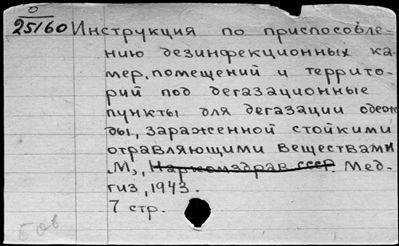 0
25160 Инструкция по приспособле-
нию дезинфекционных ка-
мер, помещений и террито-
рий под дегазационные
пункты для дегазации одеж-
ды, зараженной стойкими
отравляющими веществами
М., Наркомздрав СССР. Мед-
гиз, 1943.
7 стр.